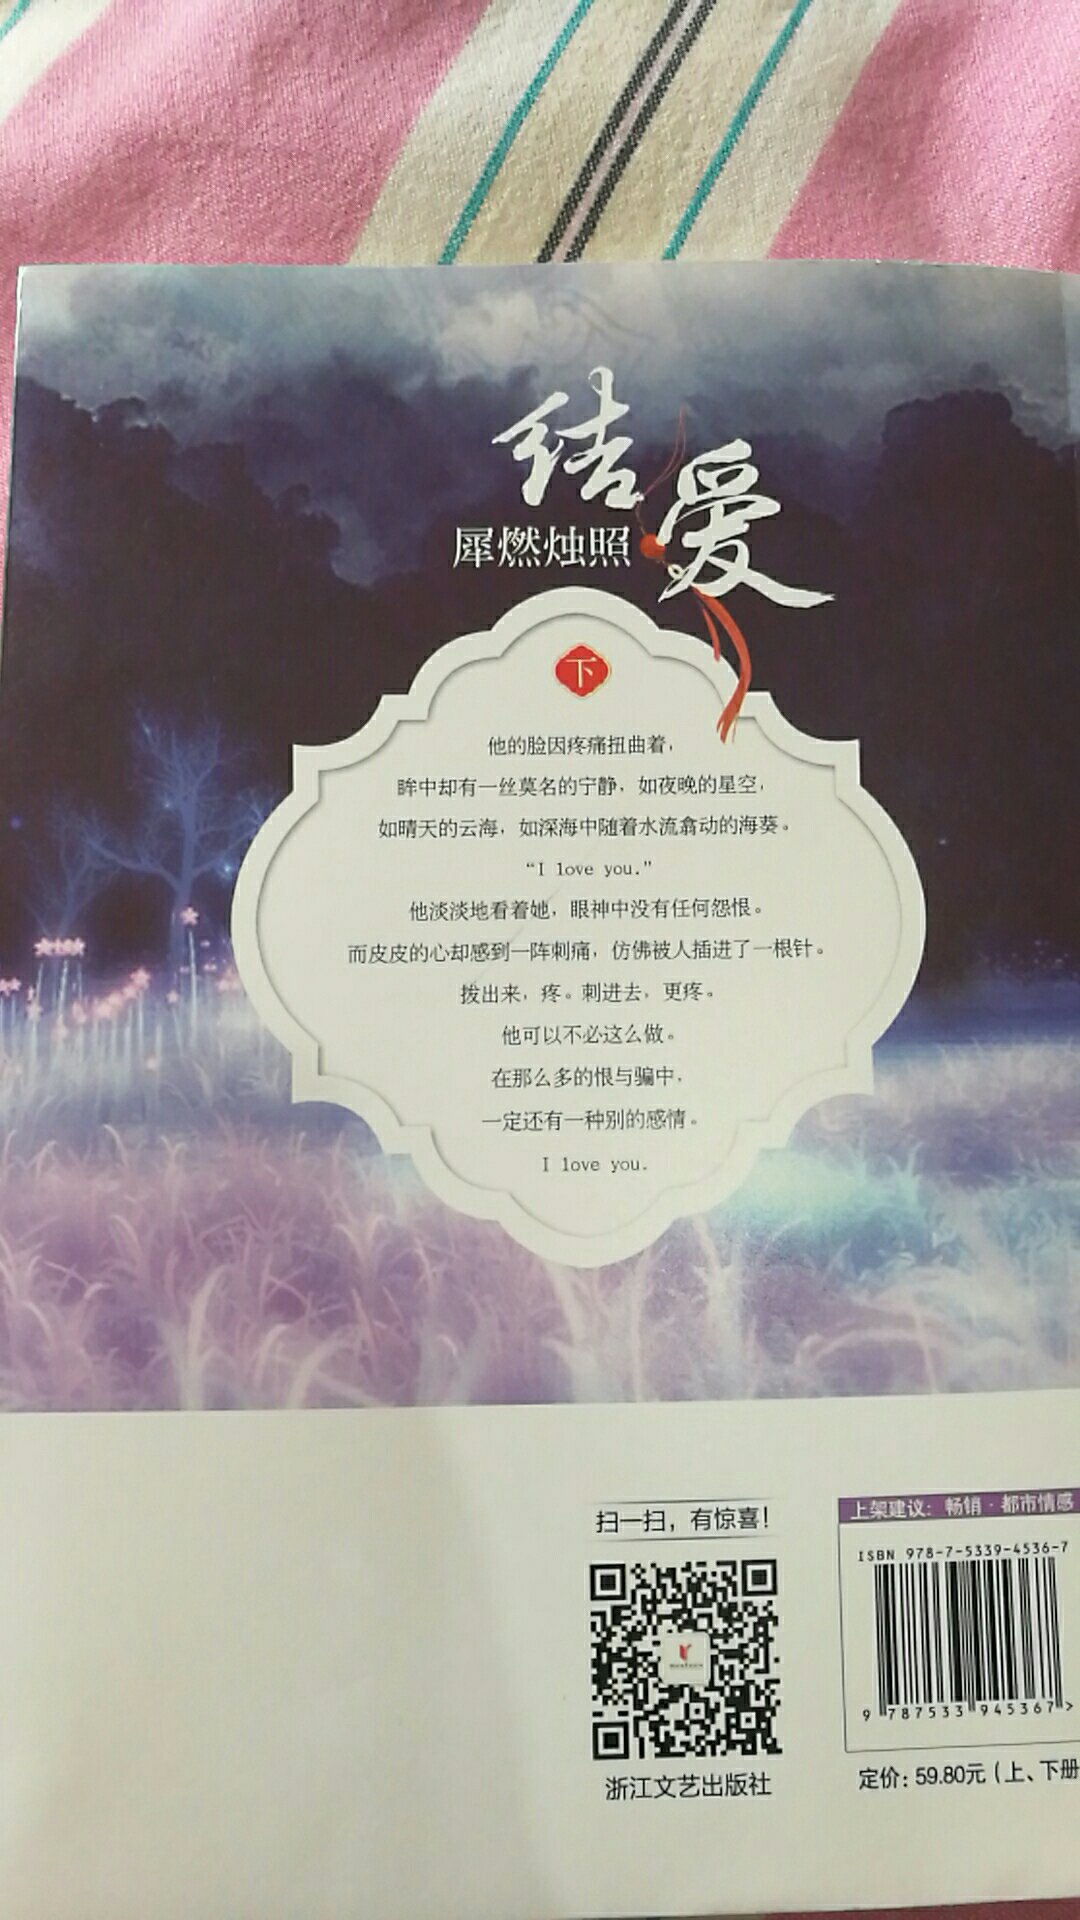 结爱
犀燃烛照
下
他的脸因疼痛扭曲着，
眸中却有一丝莫名的宁静，如夜晚的星空，
如晴天的云海，如深海中随着水流翕动的海葵。
“I love you.”
他淡淡地看着她，眼神中没有任何怨恨。
而皮皮的心却感到一阵刺痛，仿佛被人插进了一根针。
拨出来，疼。刺进去，更疼。
他可以不必这么做。
在那么多的恨与骗中，
一定还有一种别的感情。
I love you.
扫一扫，有惊喜！
浙江文艺出版社
上架建议：畅销·都市情感
ISBN 978-7-5339-4536-7
9 787533 945367 >
定价：59.80元（上、下册